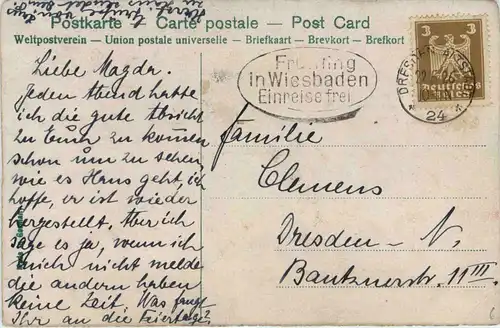 Postkarte – Carte postale – Post Card
Weltpostverein – Union postale universelle – Briefkaart – Brevkort – Brefkort
Frühling
in Wiesbaden
Einreise frei
DRESDEN-ALTSTADT
24
3 3
Deutsches
Reich
Liebe Magda.
Jeden Abend hatte
ich die gute Absicht
zu Euch zu kommen
schon um zu sehen
wie es Hans geht, ich
hoffe, er ist wieder
hergestellt. Aber ich
sage es ja, wenn ich
mich nicht melde
die andern haben
keine Zeit. Was fangt
Ihr an die Feiertage?
Familie
Clemens
Dresden – N.
Bautznerstr. 11 III.